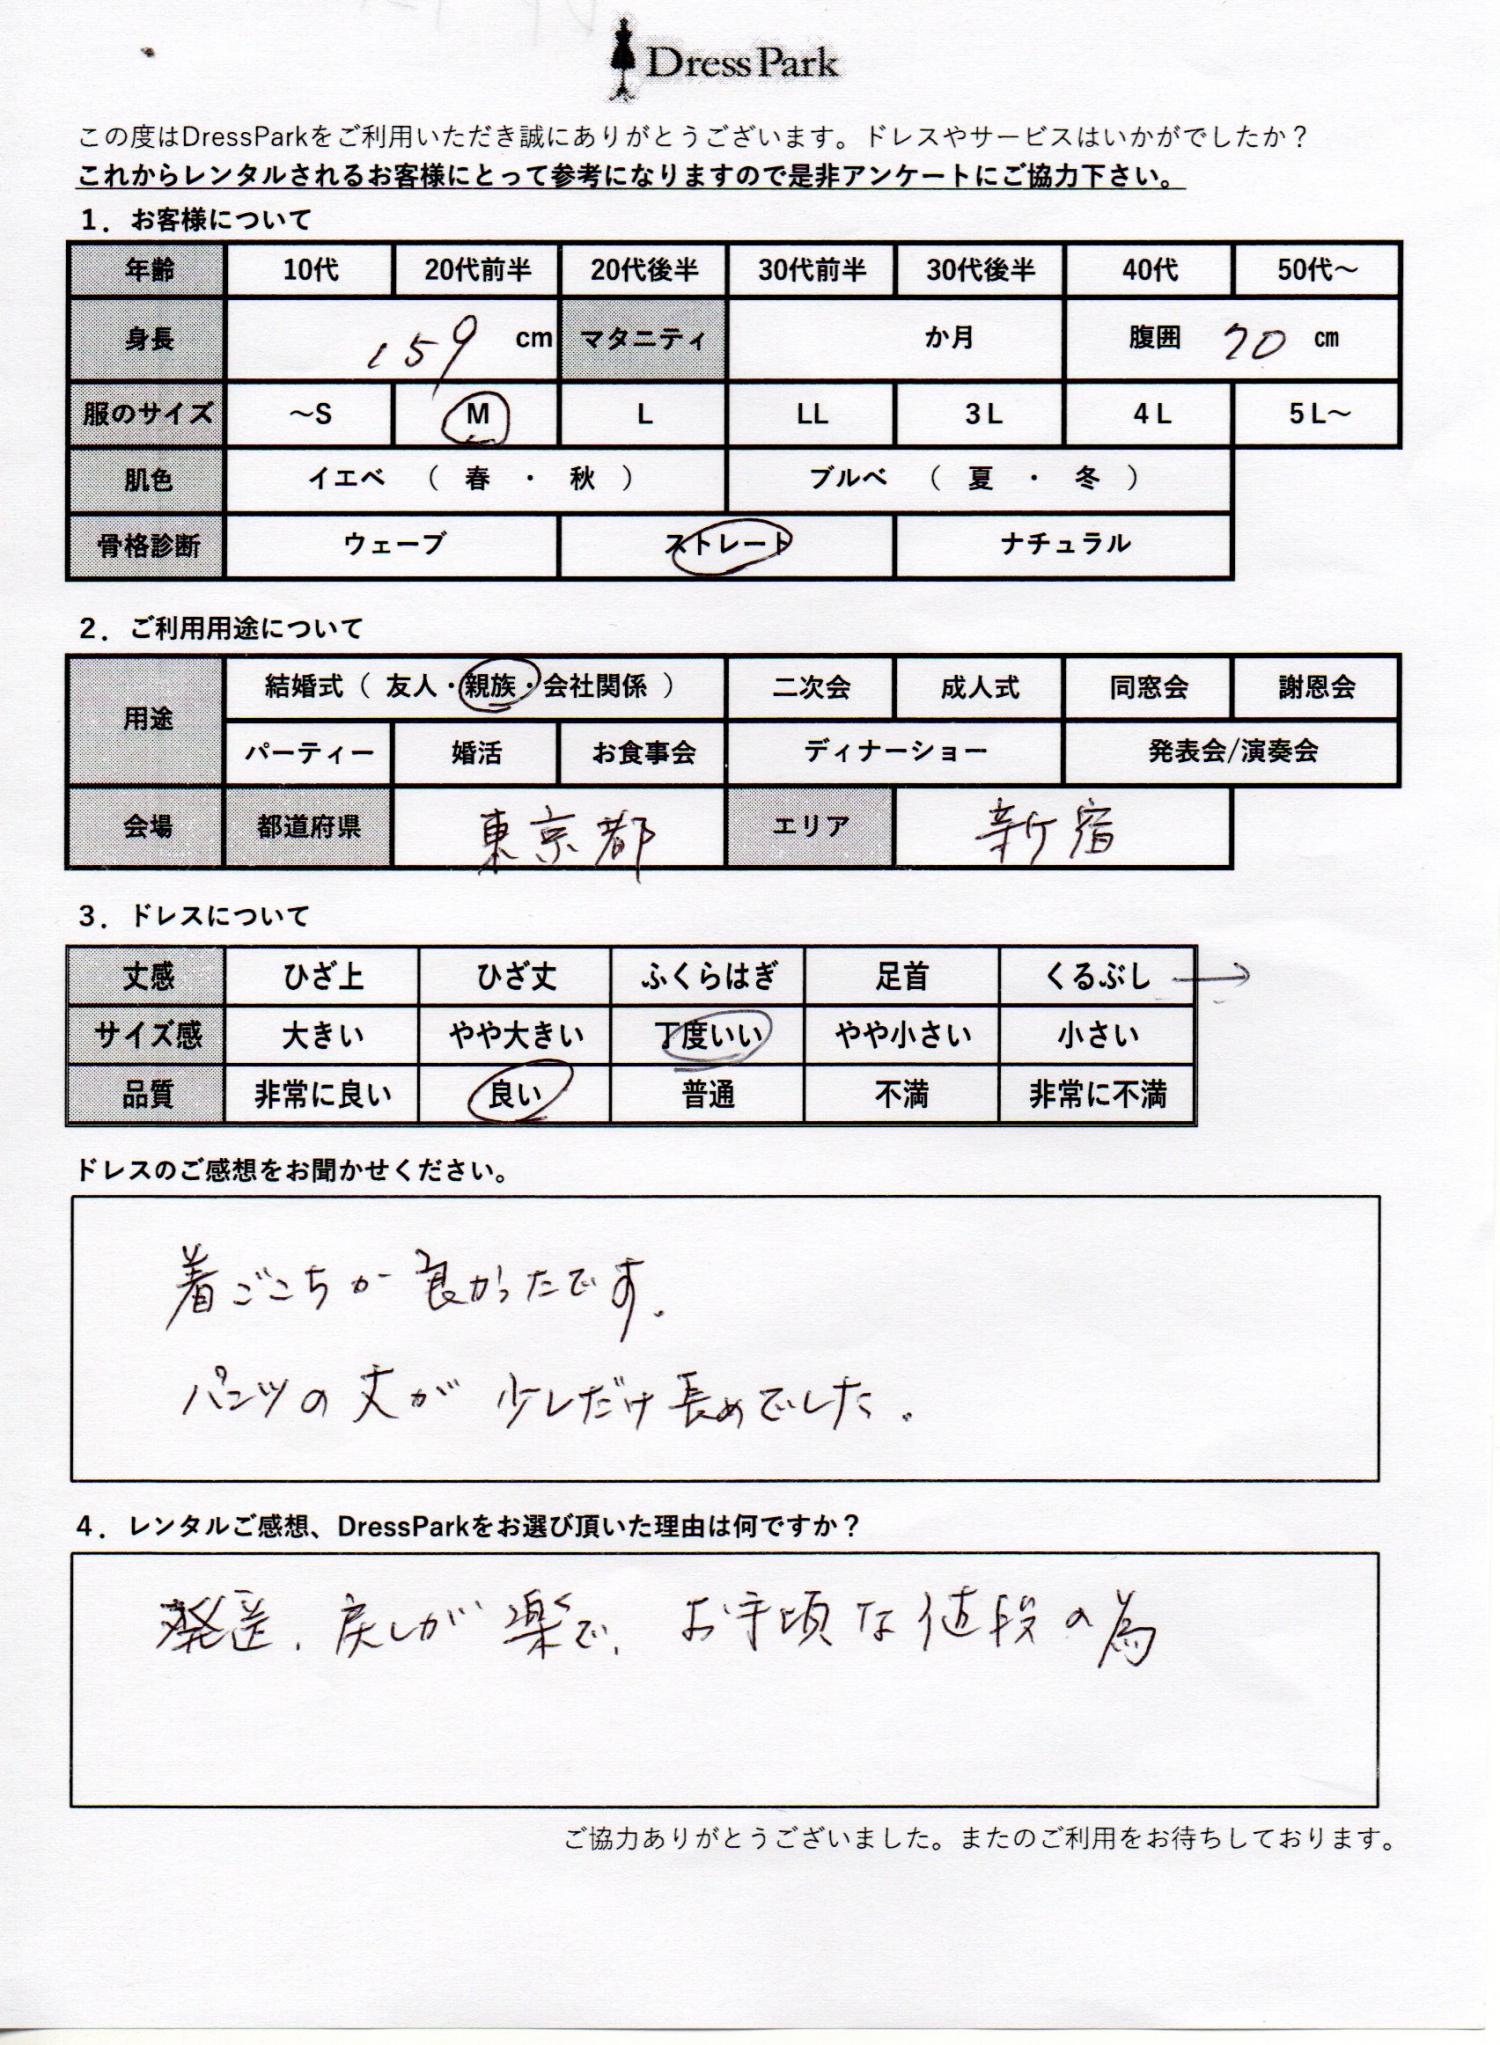 Dress Park
この度はDressParkをご利用いただき誠にありがとうございます。ドレスやサービスはいかがでしたか？
これからレンタルされるお客様にとって参考になりますので是非アンケートにご協力下さい。
１．お客様について
年齢 10代 20代前半 20代後半 30代前半 30代後半 40代 50代～
身長 159 cm マタニティ か月 腹囲 70 ㎝
服のサイズ ～S M L LL 3L 4L 5L～
肌色 イエベ （ 春 ・ 秋 ） ブルベ （ 夏 ・ 冬 ）
骨格診断 ウェーブ ストレート ナチュラル
２．ご利用用途について
用途 結婚式（ 友人・親族・会社関係 ） 二次会 成人式 同窓会 謝恩会
パーティー 婚活 お食事会 ディナーショー 発表会/演奏会
会場 都道府県 東京都 エリア 新宿
３．ドレスについて
丈感 ひざ上 ひざ丈 ふくらはぎ 足首 くるぶし →
サイズ感 大きい やや大きい 丁度いい やや小さい 小さい
品質 非常に良い 良い 普通 不満 非常に不満
ドレスのご感想をお聞かせください。
着ごこちが良かったです。
パンツの丈が少しだけ長めでした。
４．レンタルご感想、DressParkをお選び頂いた理由は何ですか？
発送、戻しが楽で、お手頃な値段の為
ご協力ありがとうございました。またのご利用をお待ちしております。